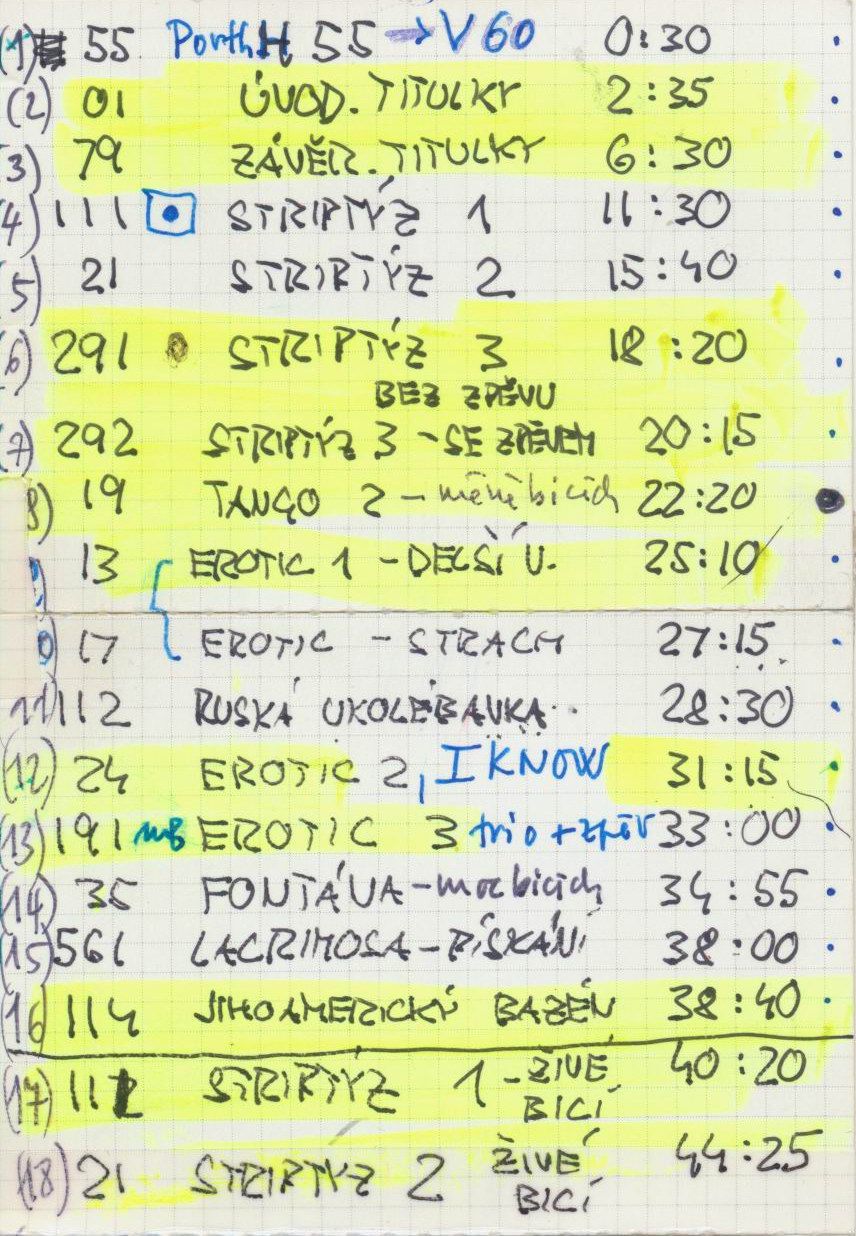 (1) 55 Porth H 55 → V60 0:30
(2) 01 ÚVOD. TITULKY 2:35
(3) 79 ZÁVĚR. TITULKY 6:30
(4) 111 STRIPTÝZ 1 11:30
(5) 21 STRIPTÝZ 2 15:40
(6) 291 STRIPTÝZ 3 18:20
BEZ ZPĚVU
(7) 292 STRIPTÝZ 3 - SE ZPĚVEM 20:15
8) 19 TANGO 2 - méně bicích 22:20
13 EROTIC 1 - DELŠÍ Ú. 25:10
0) 17 EROTIC - STRACH 27:15
11) 112 RUSKÁ UKOLÉBAVKA 28:30
(12) 24 EROTIC 2, I KNOW 31:15
(13) 191 EROTIC 3 trio + zpěv 33:00
(14) 35 FONTÁNA - moc bicích 34:55
15) 561 LACRIMOSA - PÍSKÁNÍ 38:00
(16) 114 JIHOAMERICKÝ BAZÉN 38:40
(17) 111 STRIPTÝZ 1 - ŽIVÉ 40:20
BICÍ
(18) 21 STRIPTYZ 2 ŽIVÉ 44:25
BICÍ